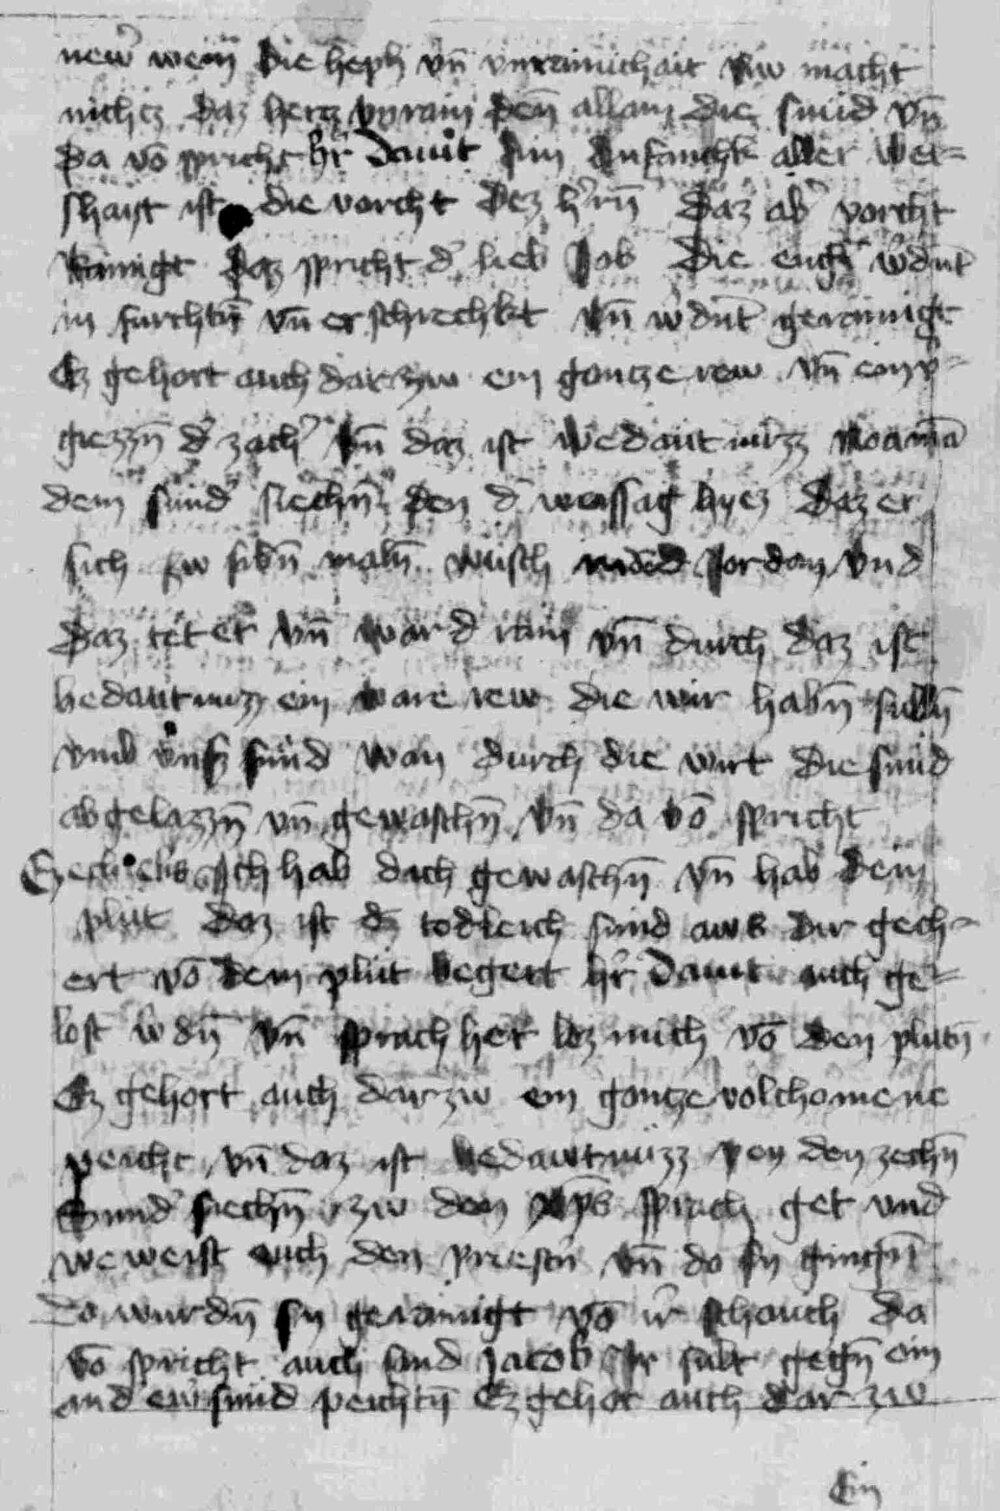 new wein die heph vn̄ vnrainichait vnd macht
nichtz daz hertz vnrain den̄ allain die sund vn̄
Da vō spricht h̄r Dauit Ein Anfanchk aller weis
shait ist die vorcht dez h̄rn̄ Daz ab̄ vorcht
Rainigt Daz spricht d̄ lieb Job Die engl w̄dnt
in furchtn̄ vn̄ erschrechkt vn̄ w̄dnt gerainigt
Ez gehort auch darzw ein gantze rew vn̄ ein v̄
giezzn̄ d̄ zach̄ vn̄ daz ist wedautnuzz Noaman̄
dem sund siechn̄ den d̄ weissag hyez Daz er
sich zw sibn̄ maln̄ wusch Jordan vnd
Daz tet er vn̄ ward rain vn̄ durch daz ist
bedautnuzz ein ware rew die wir habn̄ sulln̄
vmb vnsz sund wan durch die wirt die sund
abgelazzn̄ vn̄ gewaschn̄ vn̄ da vō spricht
Ezechielis Ich hab dich gewaschn̄ vn̄ hab dein
plut daz ist d̄ todleich sund aws dir gech
ert vō dem plut begert h̄r Dauit auch ge
lost w̄dn̄ vn̄ sprach her loz mich vō den plutn̄
Ez gehort auch darzw ein gantze volchomene
peicht vn̄ daz ist bedawtnuzz pey den zechn̄
Sund siechn̄ zw den xp̄s sprach get vnd
weweist euch den priestn̄ vn̄ do sy gingn̄
Do wurdn̄ sy gerainigt vō ir̄ schouch da
vō spricht auch sand Jacob Ir sult gegn̄ ein
and ew̄ sund peichtn̄ Ez gehort auch dar zw
Ein